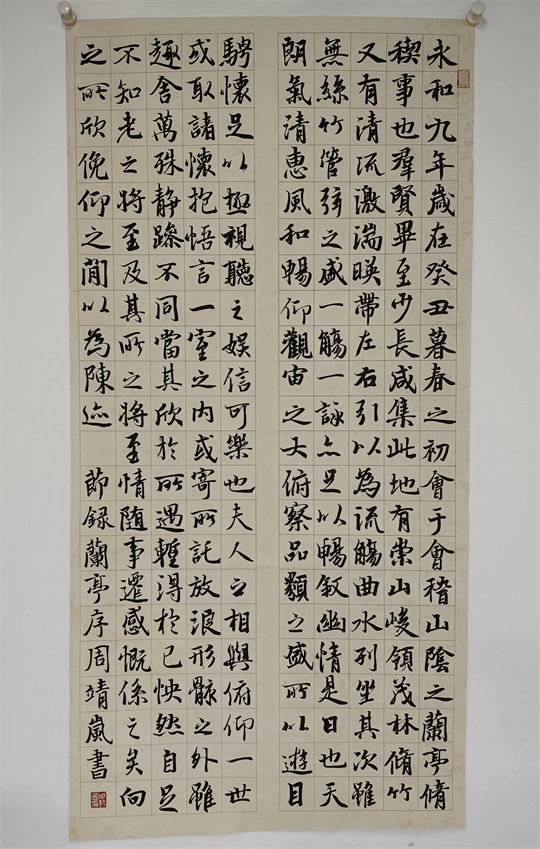 永和九年歲在癸丑暮春之初會于會稽山陰之蘭亭脩
稧事也羣賢畢至少長咸集此地有崇山峻領茂林脩竹
又有清流激湍暎帶左右引以為流觴曲水列坐其次雖
無絲竹管弦之盛一觴一詠亦足以暢敘幽情是日也天
朗氣清惠風和暢仰觀宙之大俯察品類之盛所以遊目
騁懷足以極視聽之娛信可樂也夫人之相與俯仰一世
或取諸懷抱悟言一室之內或寄所託放浪形骸之外雖
趣舍萬殊靜躁不同當其欣於所遇暫得於己怏然自足
不知老之將至及其所之將至情随事遷感慨係之矣向
之所欣俛仰之間以為陳迹 節録蘭亭序周靖嵐書